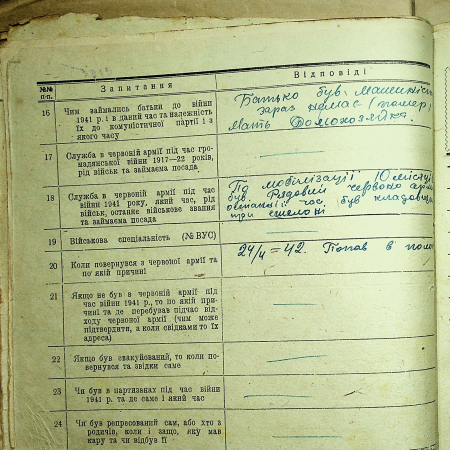 №№ п-п.
Запитання
Відповіді
16
Чим займались батьки до війни
1941 р. і в даний час та належність
їх до комуністичної партії і з
якого часу
Батько був машиніст
зараз немає (помер)
Мать Домохозяйка.
17
Служба в червоній армії під час гро-
мадянської війни 1917—22 років,
рід військ та займаєма посада
18
Служба в червоній армії під час
війни 1941 року, який час, рід
військ, останнє військове звання
та займаєма посада
По мобілізації 10 місяців
був. Рядовий червоно арм
останній час був кладовщ
при
19
Військова спеціяльність (№ ВУС)
20
Коли повернувся з червоної армії та
по якій причині
24/4 = 42. Попав в поло
21
Якщо не був в червоній армії під
час війни 1941 р., то по якій при-
чині та де перебував підчас від-
ходу червоної армії (чим може
підтвердити, а коли свідками то їх
адреса)
22
Якщо був евакуйований, то коли по-
вернувся та звідки саме
23
Чи був в партизанах під час війни
1941 р. та де саме і який час
24
Чи був репресований сам, або хто з
родичів, коли і защо, яку мав
кару та чи відбув її